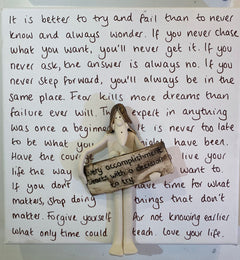 It is better to try and fail than to never
know and always wonder. If you never chase
what you want, you'll never get it. If you
never ask, the answer is always no. If you
never step forward, you'll always be in the
same place. Fear kills more dreams than
failure ever will. The expert in anything
was once a beginner. It is never too late
to be what you might have been.
Have the courage live your
life the way want to.
If you don't have time for what
matters, stop doing things that don't
matter. Forgive yourself for not knowing earlier
what only time could teach. Love your life.
Every accomplishment
starts with a decision
to try